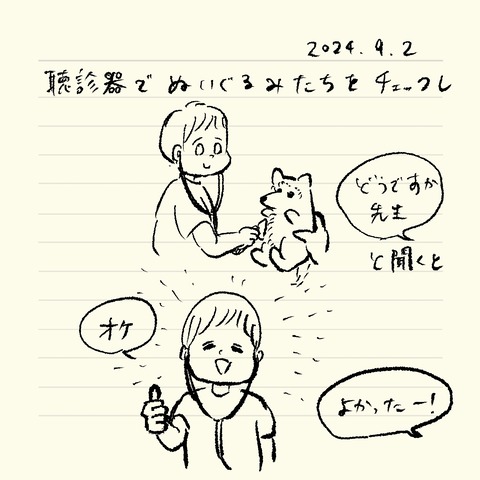 2024.9.2
聴診器で ぬいぐるみたちを チェックし
どうですか
先生
と聞くと
オケ
よかったー!